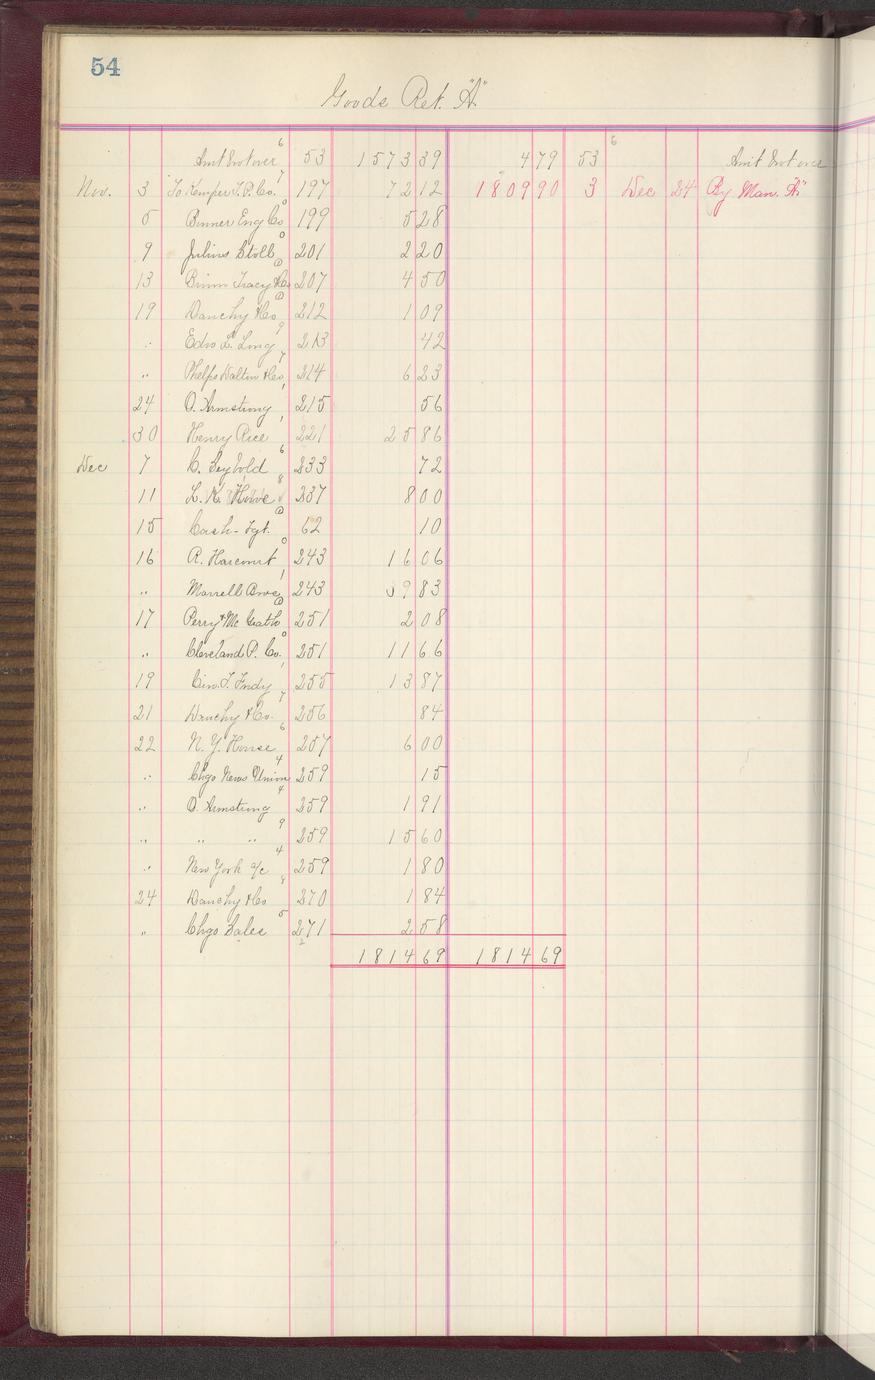 54
Goods Ret. "A"
Amt brot over 6 53 1573 39 4 79 53 6 Amt brot over
Nov. 3 To Kemper T. P. Co. 7 197 72 12 1809 90 3 Dec 24 By Man. "A"
5 Binner Eng Co 0 199 5 28
9 Julius Stoll 0 201 2 20
13 Tracy & Co 0 207 4 50
19 Dauchy & Co 0 212 1 09
" Edw L. Long 9 213 42
" Phelps Dalton & Co 7 214 6 23
24 O. Armstrong 1 215 56
30 Henry Rice 1 221 25 86
Dec 7 C. Seybold 6 233 72
11 L. K. Howe 8 237 8 00
15 Cash - Fgt. 0 62 10
16 R. Harcourt 0 243 16 06
" Morrell Bros 1 243 39 83
17 Perry & Mc Grath 0 251 2 08
" Cleveland P. Co. 0 251 11 66
19 Cin. T. Fndy 1 255 13 87
21 Dauchy & Co. 7 256 84
22 N. Y. House 6 257 6 00
" Chgo News Union 4 259 15
" O. Armstrong 4 259 1 91
" " " 9 259 15 60
" New York a/c 4 259 1 80
24 Dauchy & Co 8 270 1 84
" Chgo Sales 5 271 2 58
2 1814 69 1814 69